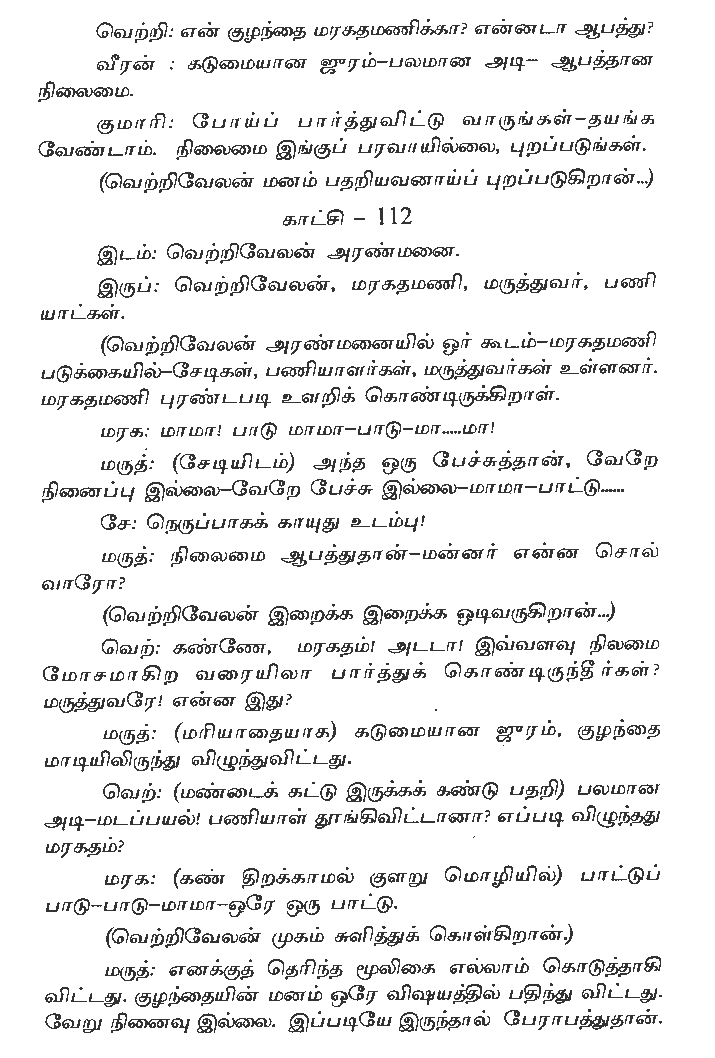 வெற்றி: என் குழந்தை மரகதமணிக்கா? என்னடா ஆபத்து?
வீரன் : கடுமையான ஜுரம்–பலமான அடி– ஆபத்தான
நிலைமை.
குமாரி: போய்ப் பார்த்துவிட்டு வாருங்கள்–தயங்க
வேண்டாம். நிலைமை இங்குப் பரவாயில்லை, புறப்படுங்கள்.
(வெற்றிவேலன் மனம் பதறியவனாய்ப் புறப்படுகிறான்...)
காட்சி – 112
இடம்: வெற்றிவேலன் அரண்மனை.
இருப்: வெற்றிவேலன், மரகதமணி, மருத்துவர், பணி
யாட்கள்.
(வெற்றிவேலன் அரண்மனையில் ஓர் கூடம்–மரகதமணி
படுக்கையில்–சேடிகள், பணியாளர்கள், மருத்துவர்கள் உள்ளனர்.
மரகதமணி புரண்டபடி உளறிக் கொண்டிருக்கிறாள்.
மரக: மாமா! பாடு மாமா–பாடு–மா.....மா!
மருத்: (சேடியிடம்) அந்த ஒரு பேச்சுத்தான், வேறே
நினைப்பு இல்லை–வேறே பேச்சு இல்லை–மாமா–பாட்டு......
சே: நெருப்பாகக் காயுது உடம்பு!
மருத்: நிலைமை ஆபத்துதான்–மன்னர் என்ன சொல்
வாரோ?
(வெற்றிவேலன் இறைக்க இறைக்க ஓடிவருகிறான்...)
வெற்: கண்ணே, மரகதம்! அடடா! இவ்வளவு நிலமை
மோசமாகிற வரையிலா பார்த்துக் கொண்டிருந்தீர்கள்?
மருத்துவரே! என்ன இது?
மருத்: (மரியாதையாக) கடுமையான ஜுரம், குழந்தை
மாடியிலிருந்து விழுந்துவிட்டது.
வெற்: (மண்டைக் கட்டு இருக்கக் கண்டு பதறி) பலமான
அடி–மடப்பயல்! பணியாள் தூங்கிவிட்டானா? எப்படி விழுந்தது
மரகதம்?
மரக: (கண் திறக்காமல் குளறு மொழியில்) பாட்டுப்
பாடு–பாடு–மாமா–ஒரே ஒரு பாட்டு.
(வெற்றிவேலன் முகம் சுளித்துக் கொள்கிறான்.)
மருத்: எனக்குத் தெரிந்த மூலிகை எல்லாம் கொடுத்தாகி
விட்டது. குழந்தையின் மனம் ஒரே விஷயத்தில் பதிந்து விட்டது.
வேறு நினைவு இல்லை. இப்படியே இருந்தால் பேராபத்துதான்.